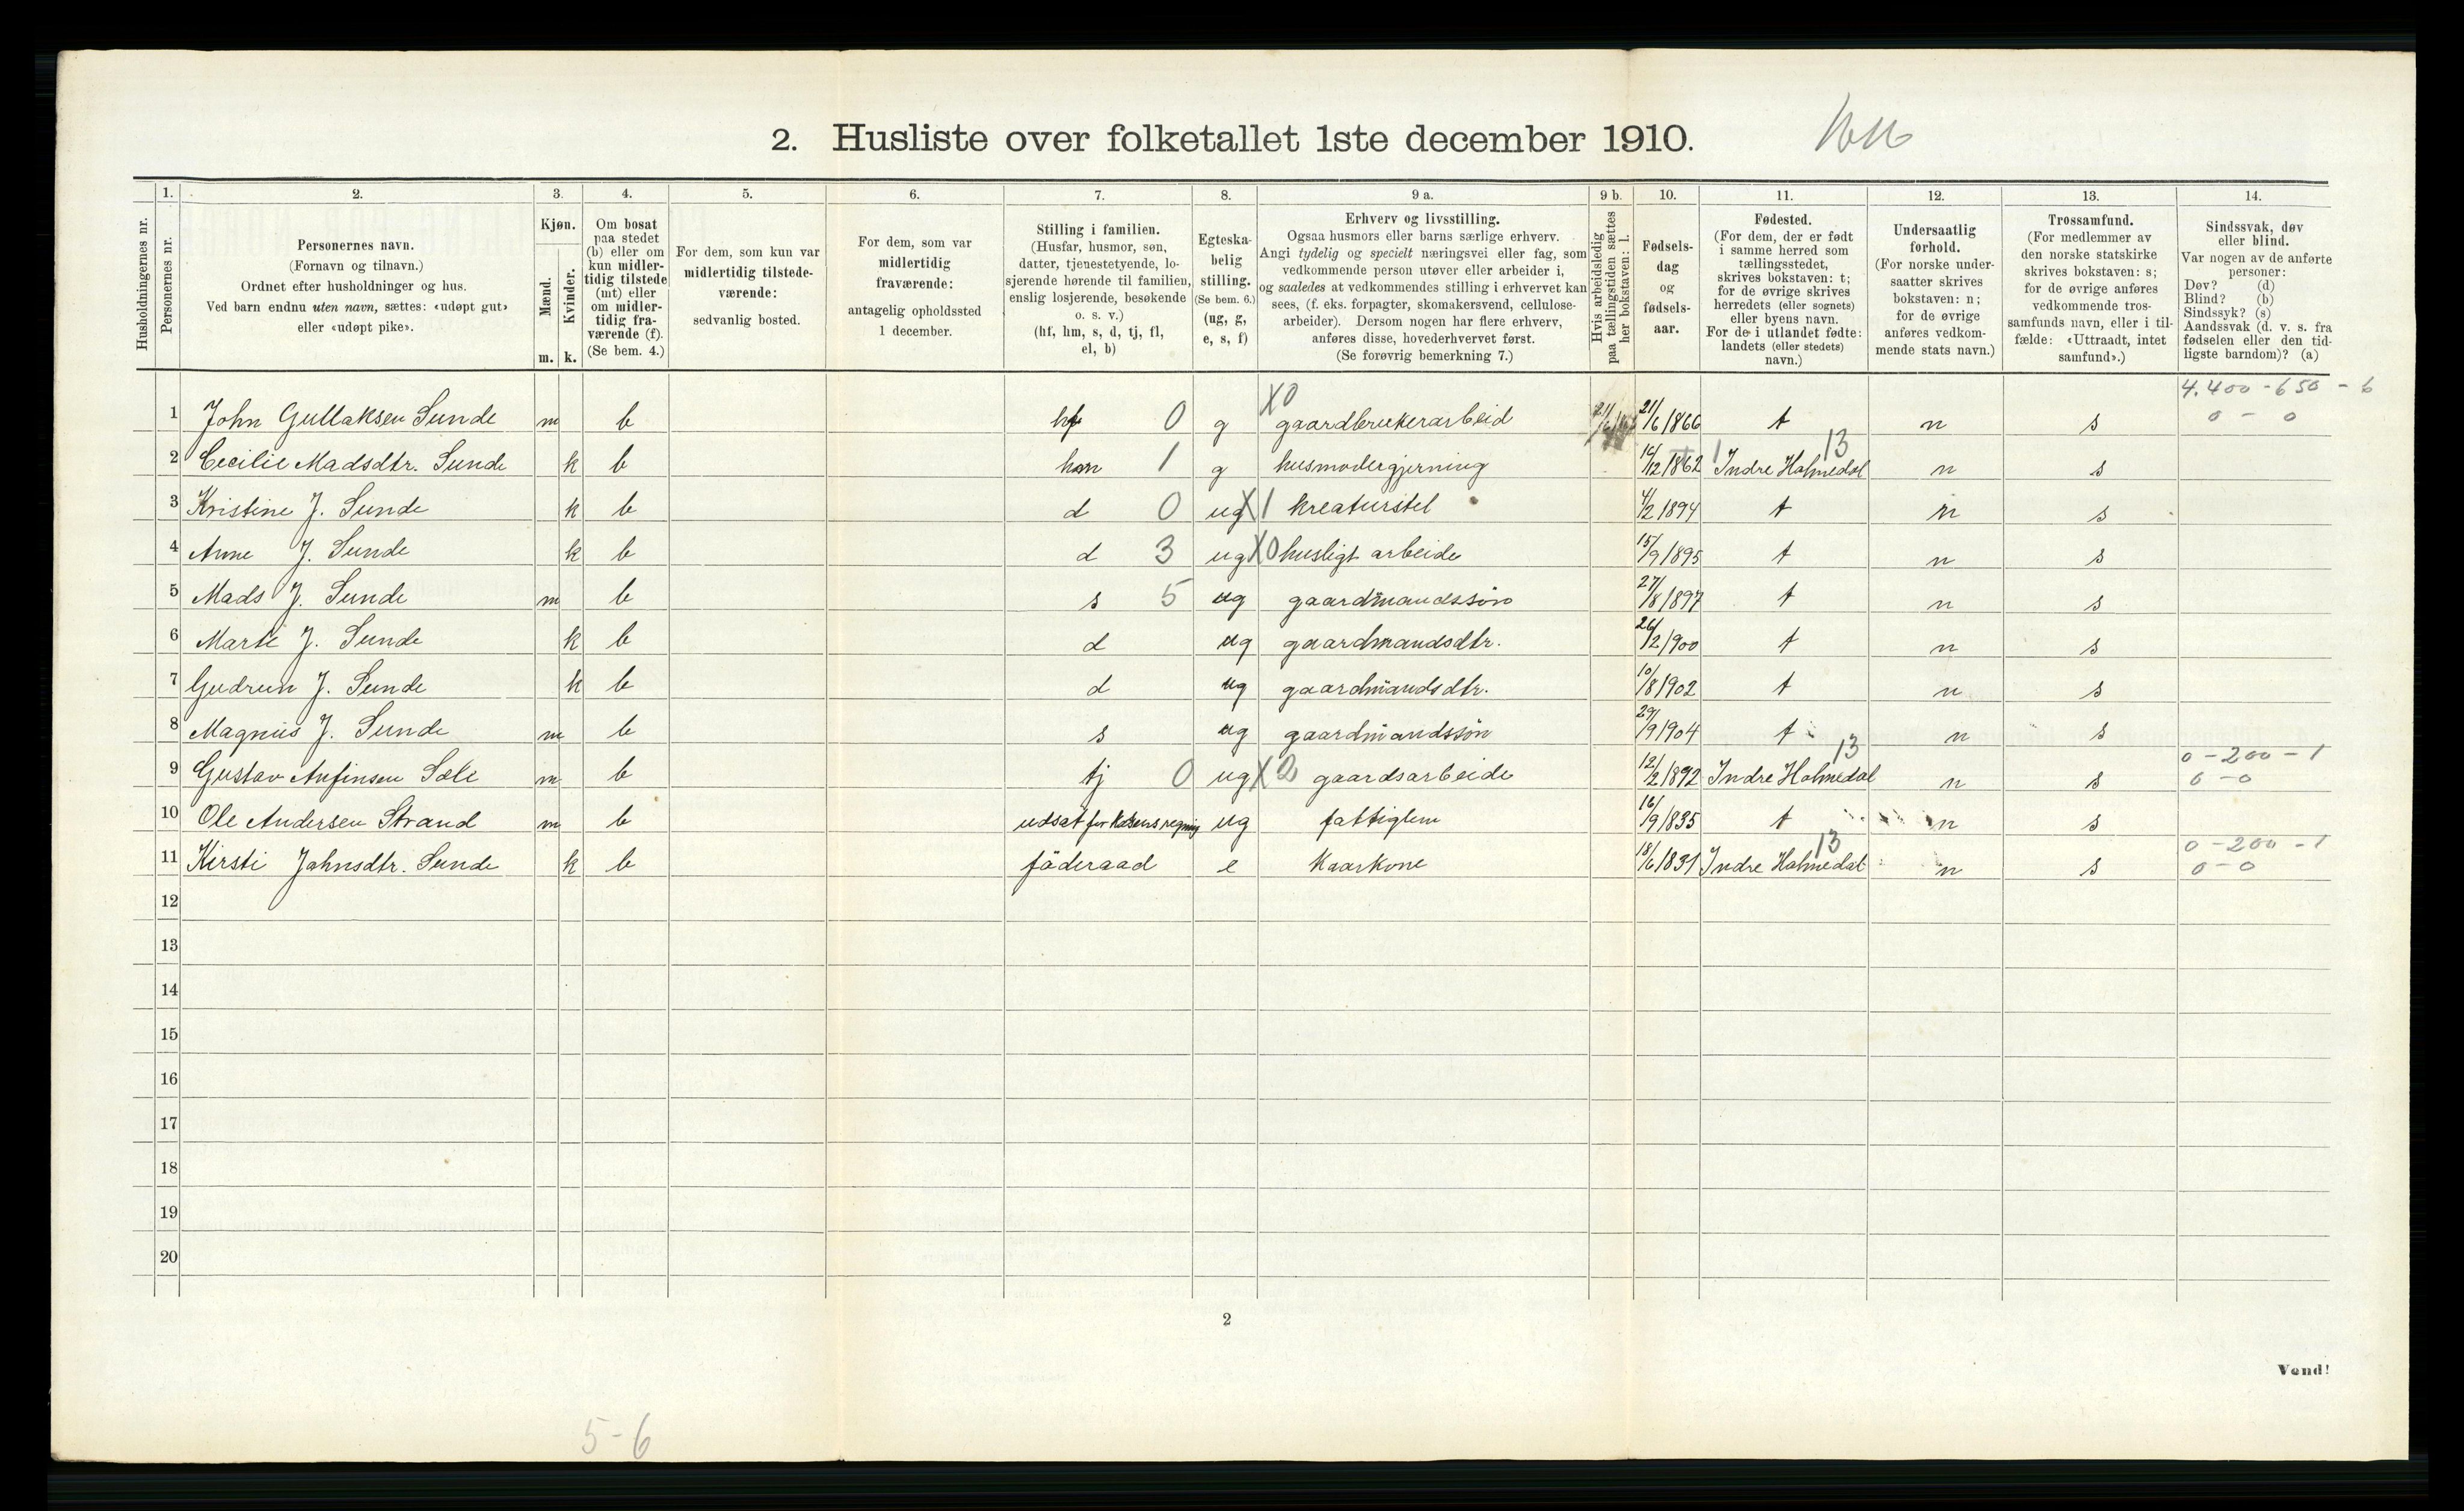 2. Husliste over folketallet 1ste december 1910.
Husholdningernes nr.
1. Personernes nr.
2. Personernes navn.
(Fornavn og tilnavn.)
Ordnet efter husholdninger og hus.
Ved barn endnu uten navn, sættes: «udøpt gut»
eller «udøpt pike».
3. Kjøn.
Mænd. m.
Kvinder. k.
4. Om bosat
paa stedet
(b) eller om
kun midler-
tidig tilstede
(mt) eller
om midler-
tidig fra-
værende (f).
(Se bem. 4.)
5. For dem, som kun var
midlertidig tilstede-
værende:
sedvanlig bosted.
6. For dem, som var
midlertidig
fraværende:
antagelig opholdssted
1 december.
7. Stilling i familien.
(Husfar, husmor, søn,
datter, tjenestetyende, lo-
sjerende hørende til familien,
enslig losjerende, besøkende
o. s. v.)
(hf, hm, s, d, tj, fl,
el, b)
8. Egteska-
belig
stilling.
(Se bem. 6.)
(ug, g,
e, s, f)
9 a. Erhverv og livsstilling.
Ogsaa husmors eller barns særlige erhverv.
Angi tydelig og specielt næringsvei eller fag, som
vedkommende person utøver eller arbeider i,
og saaledes at vedkommendes stilling i erhvervet kan
sees, (f. eks. forpagter, skomakersvend, cellulose-
arbeider). Dersom nogen har flere erhverv,
anføres disse, hovederhvervet først.
(Se forøvrig bemerkning 7.)
9 b. Hvis arbeidsledig
paa tællingstiden sættes
her bokstaven: l.
10. Fødsels-
dag
og
fødsels-
aar.
11. Fødested.
(For dem, der er født
i samme herred som
tællingsstedet,
skrives bokstaven: t;
for de øvrige skrives
herredets (eller sognets)
eller byens navn.
For de i utlandet fødte:
landets (eller stedets)
navn.)
12. Undersaatlig
forhold.
(For norske under-
saatter skrives
bokstaven: n;
for de øvrige
anføres vedkom-
mende stats navn.)
13. Trossamfund.
(For medlemmer av
den norske statskirke
skrives bokstaven: s;
for de øvrige anføres
vedkommende tros-
samfunds navn, eller i til-
fælde: «Uttraadt, intet
samfund».)
14. Sindssvak, døv
eller blind.
Var nogen av de anførte
personer:
Døv? (d)
Blind? (b)
Sindssyk? (s)
Aandssvak (d. v. s. fra
fødselen eller den tid-
ligste barndom)? (a)
4.400 - 650 - 6
1 John Gullaksen Sunde m b hf 0 g X0 gaardbrukerarbeid 21/6 1866 t n s 0 - 0
2 Cecilie Madsdtr. Sunde k b hm 1 g husmodergjerning 14/12 1862 Indre Holmedal 13 n s
3 Kristine J. Sunde k b d 0 ug X1 kreaturstel 4/2 1894 t n s
4 Anne J. Sunde k b d 3 ug X0 husligt arbeide 15/9 1895 t n s
5 Mads J. Sunde m b s 5 ug gaardmandssøn 27/8 1897 t n s
6 Marte J. Sunde k b d ug gaardmandsdtr. 26/2 1900 t n s
7 Gudrun J. Sunde k b d ug gaardmandsdtr. 10/8 1902 t n s
8 Magnus J. Sunde m b s ug gaardmandssön 29/9 1904 t n s
9 Gustav Anfinsen Sæle m b tj 0 ug X2 gaardsarbeide 12/2 1892 Indre Holmedal 13 n s 0 - 200 - 1 0 - 0
10 Ole Andersen Strand m b udsat for kassens regning ug fattiglem 16/9 1835 t n s
11 Kirsti Jahnsdtr. Sunde k b föderaad e Kaarkone 18/6 1831 Indre Holmedal 13 n s 0 - 200 - 1 0 - 0
12
13
14
15
16
17
18
19
20
2
Vend!
5-6